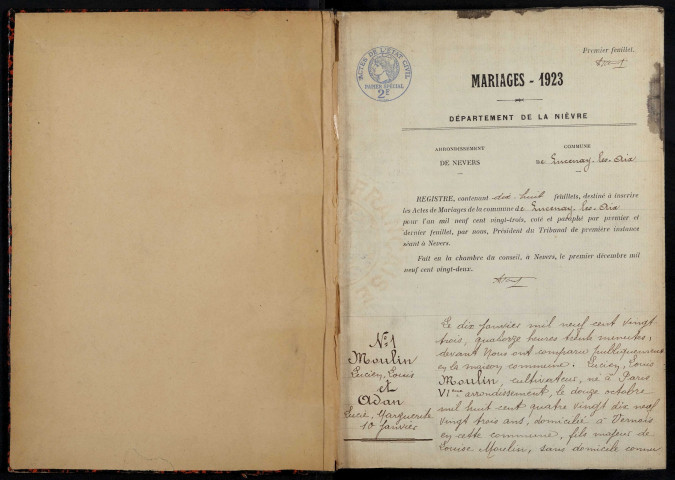 ACTES DE L'ÉTAT CIVIL
PAPIER SPÉCIAL
2E
Premier feuillet.
MARIAGES - 1923
DÉPARTEMENT DE LA NIÈVRE
ARRONDISSEMENT
DE NEVERS
COMMUNE
DE Lucenay-les-Aix
REGISTRE, contenant dix-huit feuillets, destiné à inscrire
les Actes de Mariages de la commune de Lucenay-les-Aix
pour l'an mil neuf cent vingt-trois, coté et paraphé par premier et
dernier feuillet, par nous, Président du Tribunal de première instance
séant à Nevers.
Fait en la chambre du conseil, à Nevers, le premier décembre mil
neuf cent vingt-deux.
No 1
Moulin
Lucien, Louis
et
Adan
Lucie, Marguerite
10 Janvier
Le dix janvier mil neuf cent vingt
trois, quatorze heures trente minutes,
devant Nous ont comparu publiquement
en la maison commune: Lucien, Louis
Moulin, cultivateur, né à Paris
VIme arrondissement, le douze octobre
mil huit cent quatre vingt dix neuf
vingt trois ans, domicilié à Vernois
en cette commune, fils majeur de
Louise Moulin, sans domicile connu